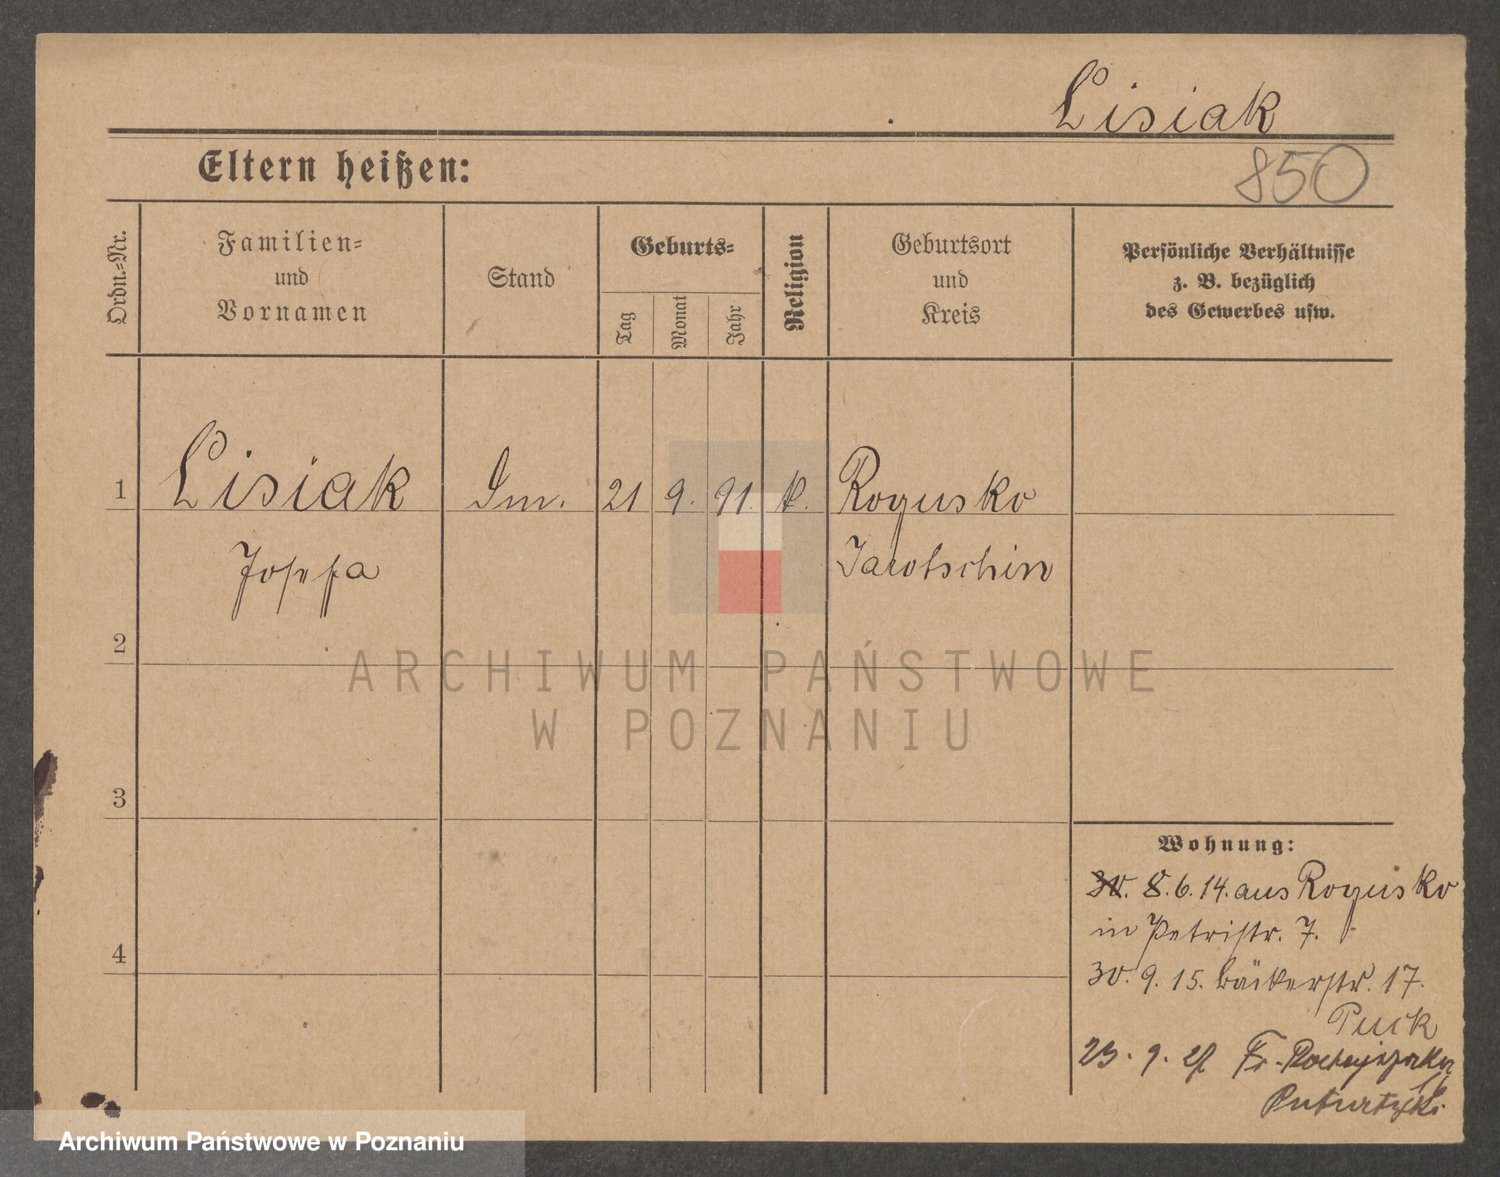 Lisiak
Eltern heißen:
850
Ordn.-Nr.
Familien-
und
Vornamen
Stand
Geburts-
Tag
Monat
Jahr
Religion
Geburtsort
und
Kreis
Persönliche Verhältnisse
z. B. bezüglich
des Gewerbes usw.
1
Lisiak
21
9.
91.
k.
Rogusko
Josefa
Jarotschin
2
ARCHIWUM PAŃSTWOWE
W POZNANIU
3
Wohnung:
8.6.14. aus Rogusko
in Petristr. 7.
4
30.9.15. Bäckerstr. 17.
Puck
23.9.
Archiwum Państwowe w Poznaniu